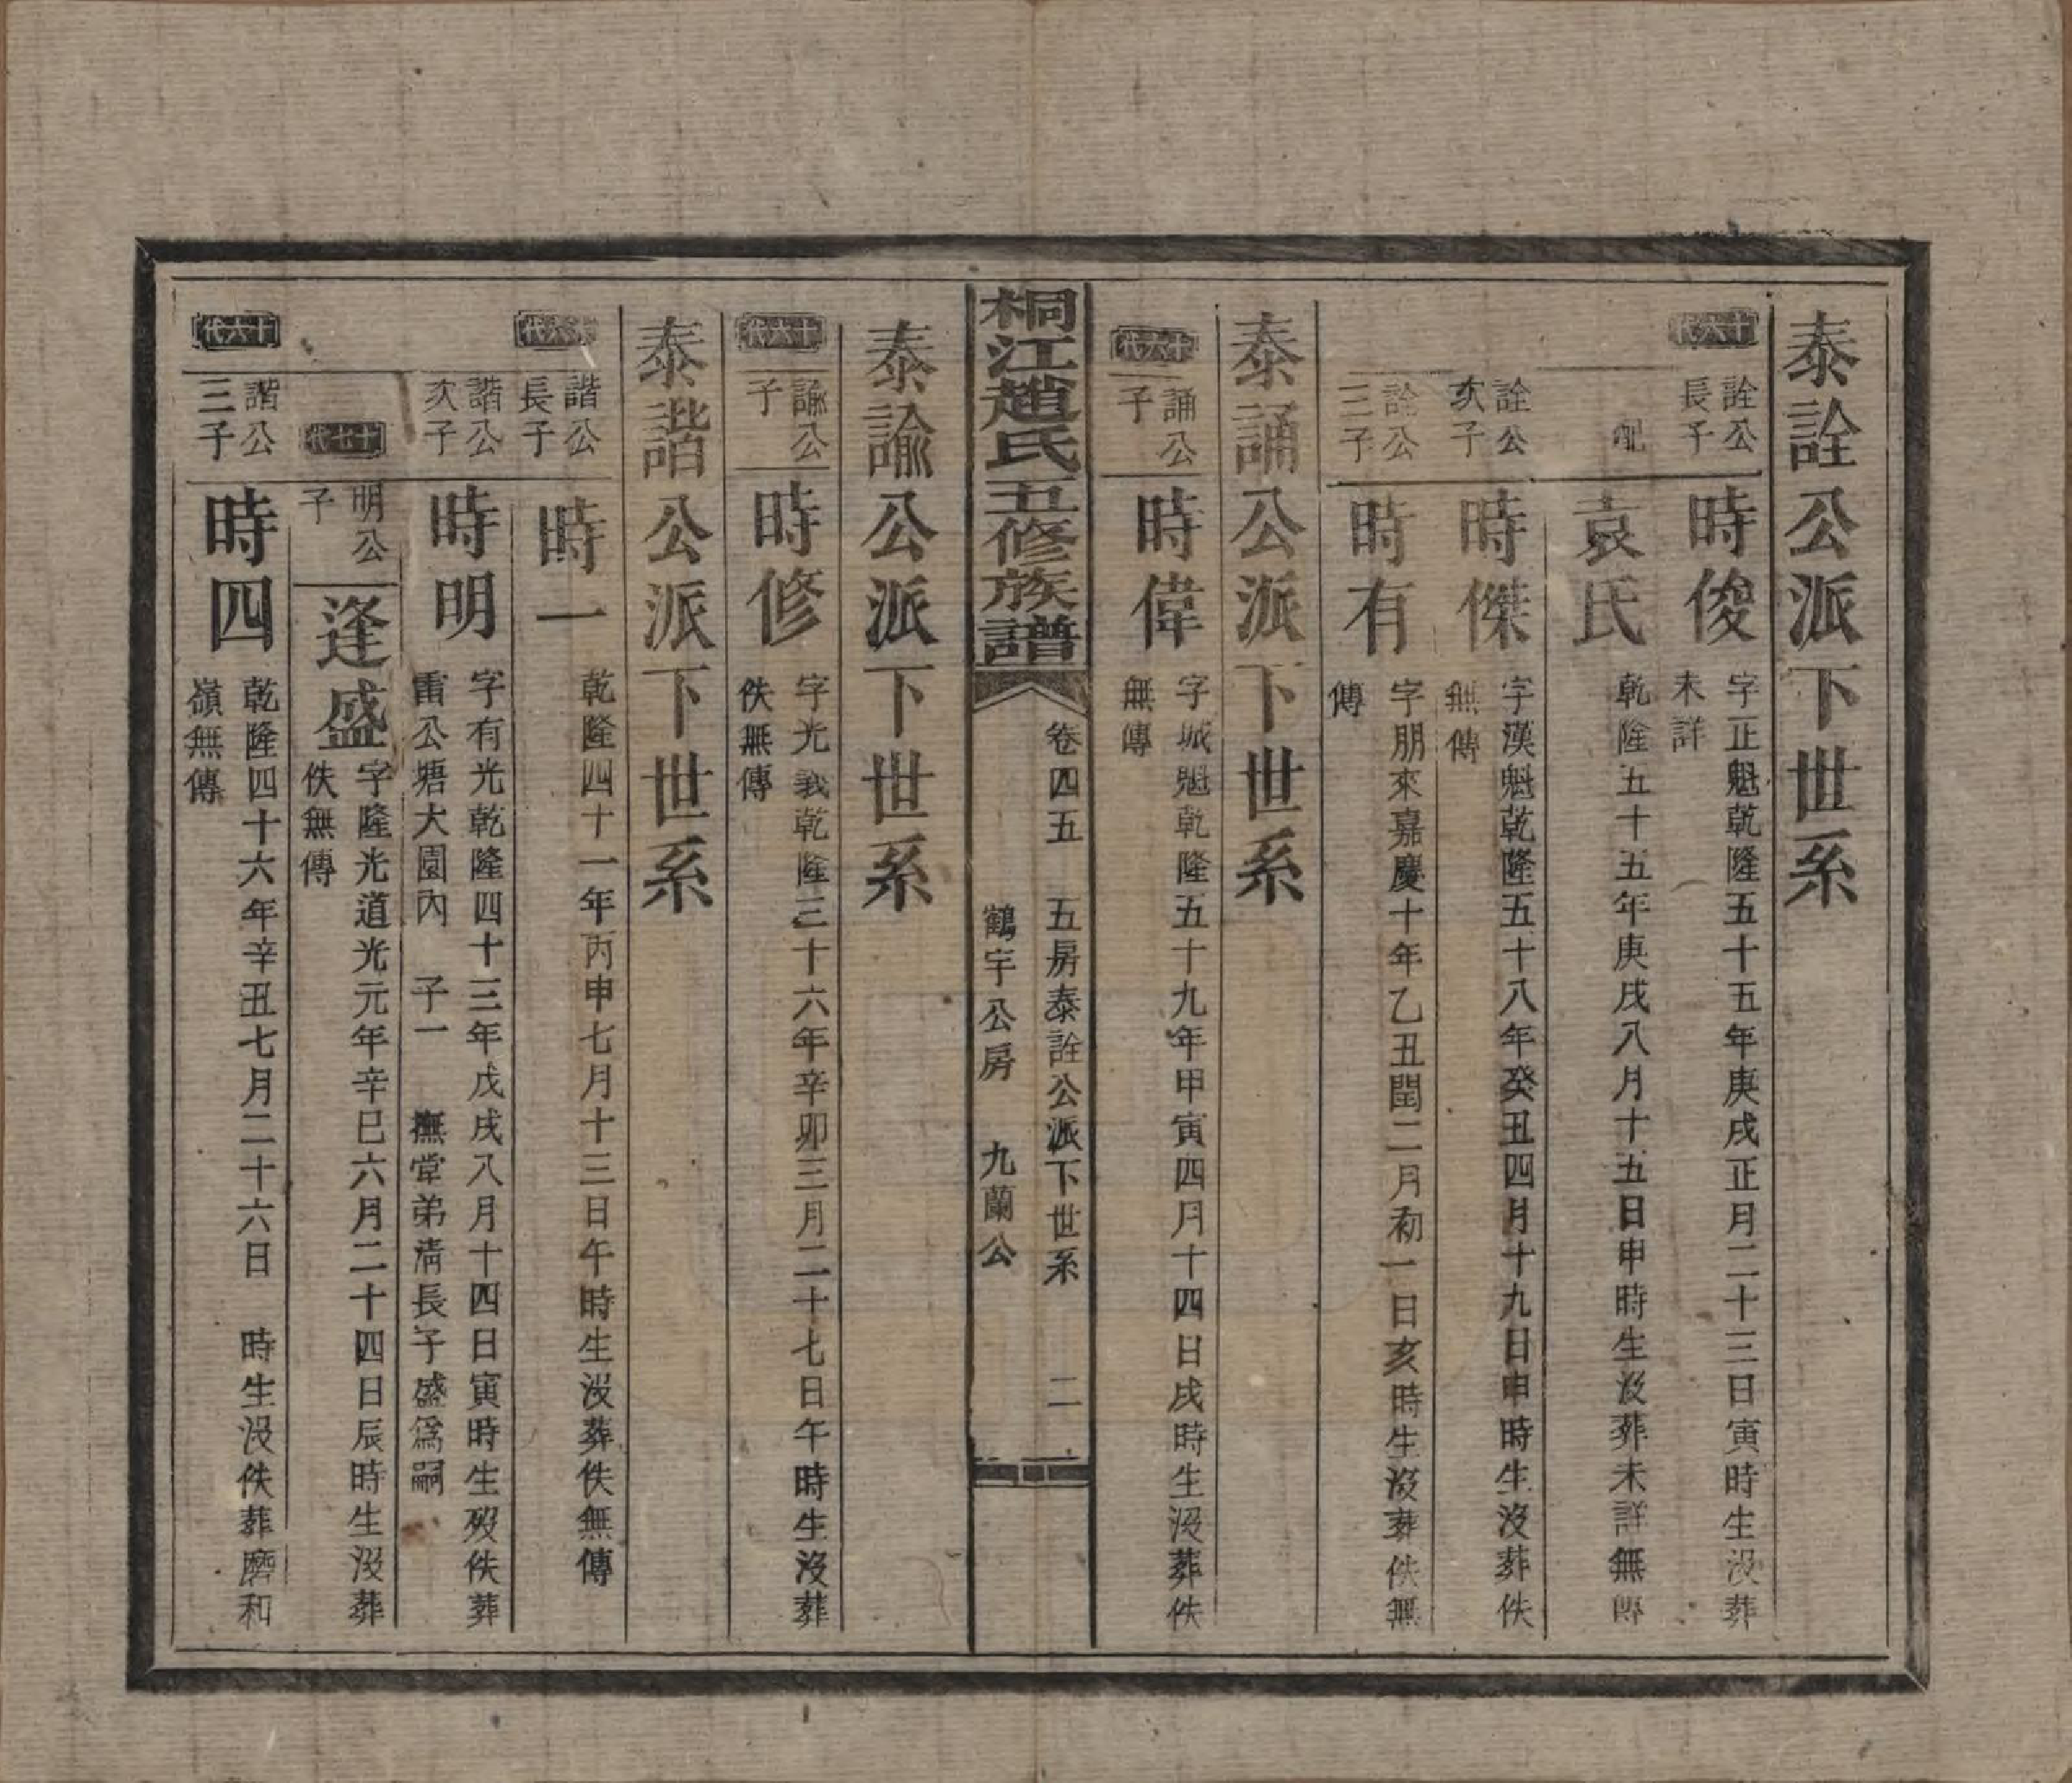 泰詮公派下世系
十六代
詮公長子
時俊
字正魁乾隆五十五年庚戌正月二十三日寅時生沒葬
未詳
配
袁氏
乾隆五十五年庚戌八月十五日申時生沒葬未詳無傳
詮公次子
時傑
字漢魁乾隆五十八年癸丑四月十九日申時生沒葬佚
無傳
詮公三子
時有
字朋來嘉慶十年乙丑閏二月初一日亥時生沒葬佚無
傳
泰誦公派下世系
十六代
誦公子
時偉
字城魁乾隆五十九年甲寅四月十四日戌時生沒葬佚
無傳
桐江趙氏五修族譜
卷四五 五房泰詮公派下世系 二
鶴宇公房 九蘭公
泰諭公派下世系
十六代
諭公子
時修
字光義乾隆三十六年辛卯三月二十七日午時生沒葬
佚無傳
泰諧公派下世系
十六代
諧公長子
時一
乾隆四十一年丙申七月十三日午時生沒葬佚無傳
諧公次子
時明
字有光乾隆四十三年戊戌八月十四日寅時生歿佚葬
雷公塘大園內 子一 撫堂弟清長子盛為嗣
十七代
明公子
逢盛
字隆光道光元年辛巳六月二十四日辰時生沒葬
佚無傳
十六代
諧公三子
時四
乾隆四十六年辛丑七月二十六日 時生沒佚葬磨和
嶺無傳